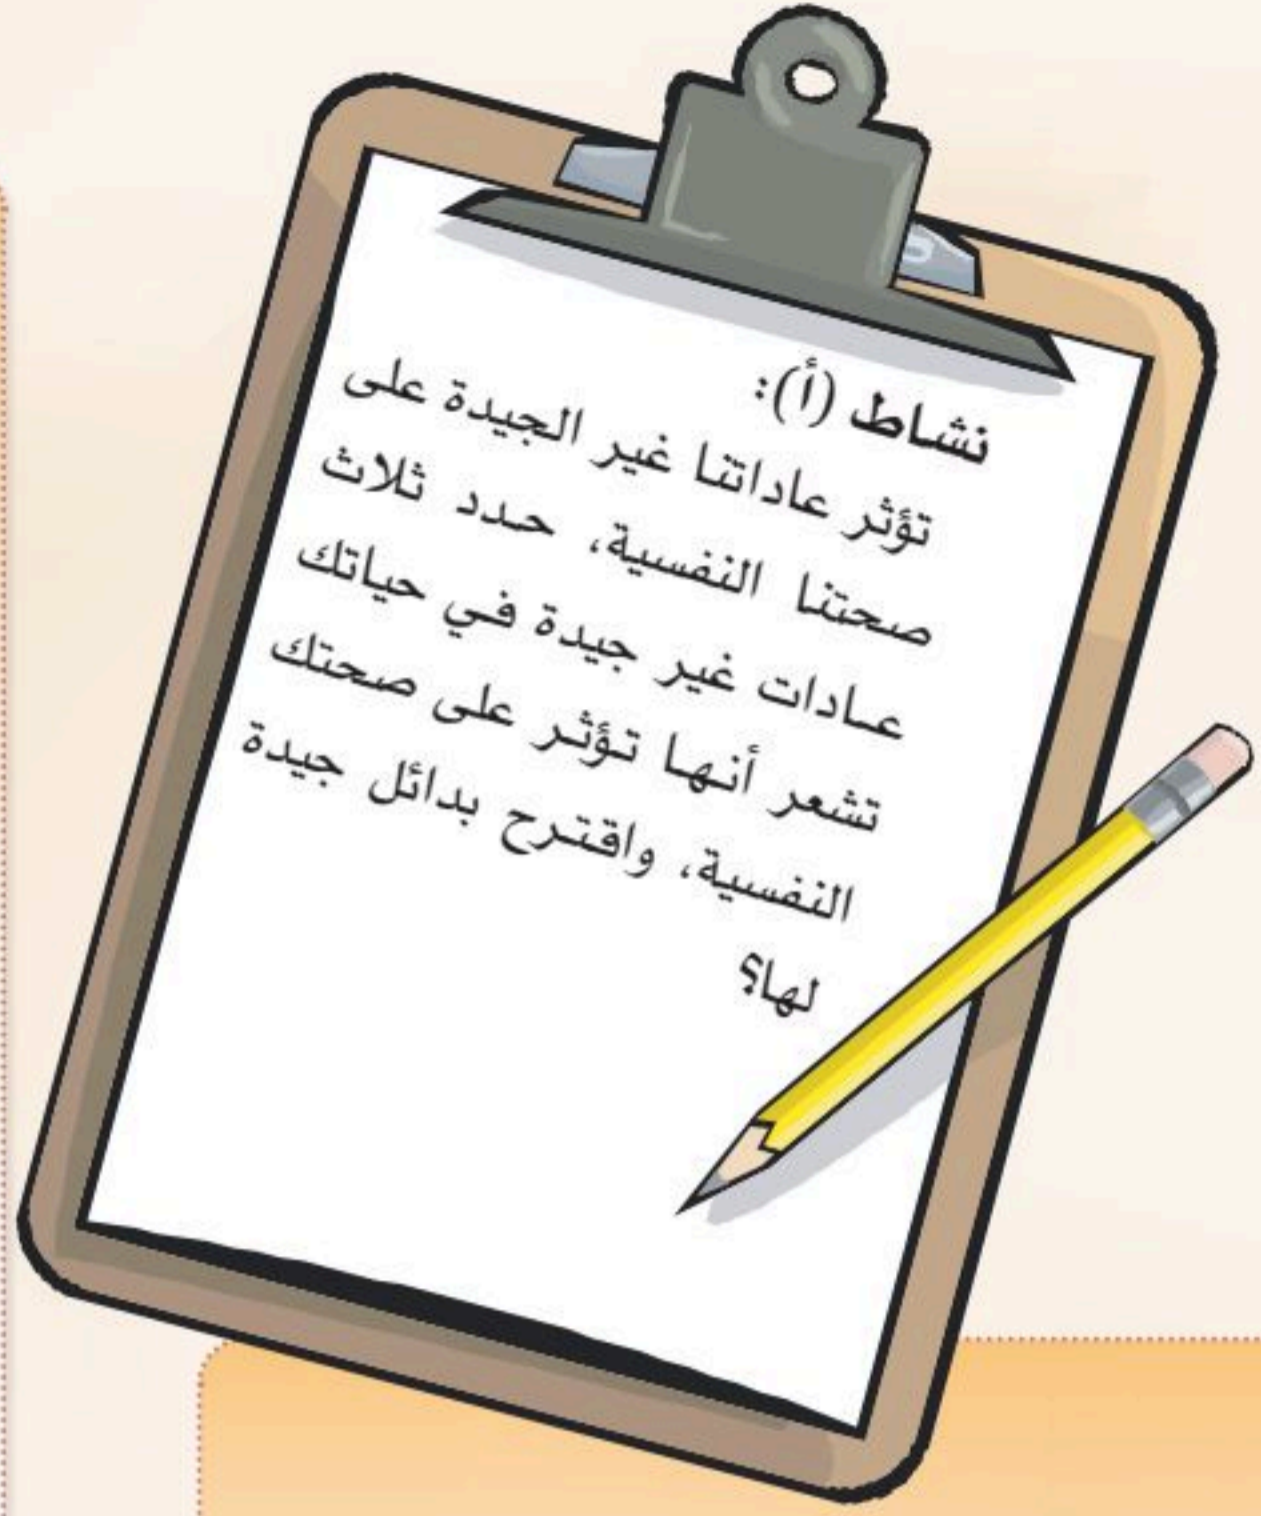 نشاط (أ):
تؤثر عاداتنا غير الجيدة على
صحتنا النفسية، حدد ثلاث
عادات غير جيدة في حياتك
تشعر أنها تؤثر على صحتك
النفسية، واقترح بدائل جيدة
لها؟